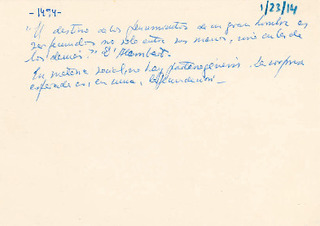 -1494-
1/23/14
"El destino de los pensamientos de un gran hombre es
ser fecundos no sólo entre sus manos, sino en las de
los demás." D'Alembert.
En materia social no hay partenogénesis. La sorpresa
esperada es, en suma, la fecundación_